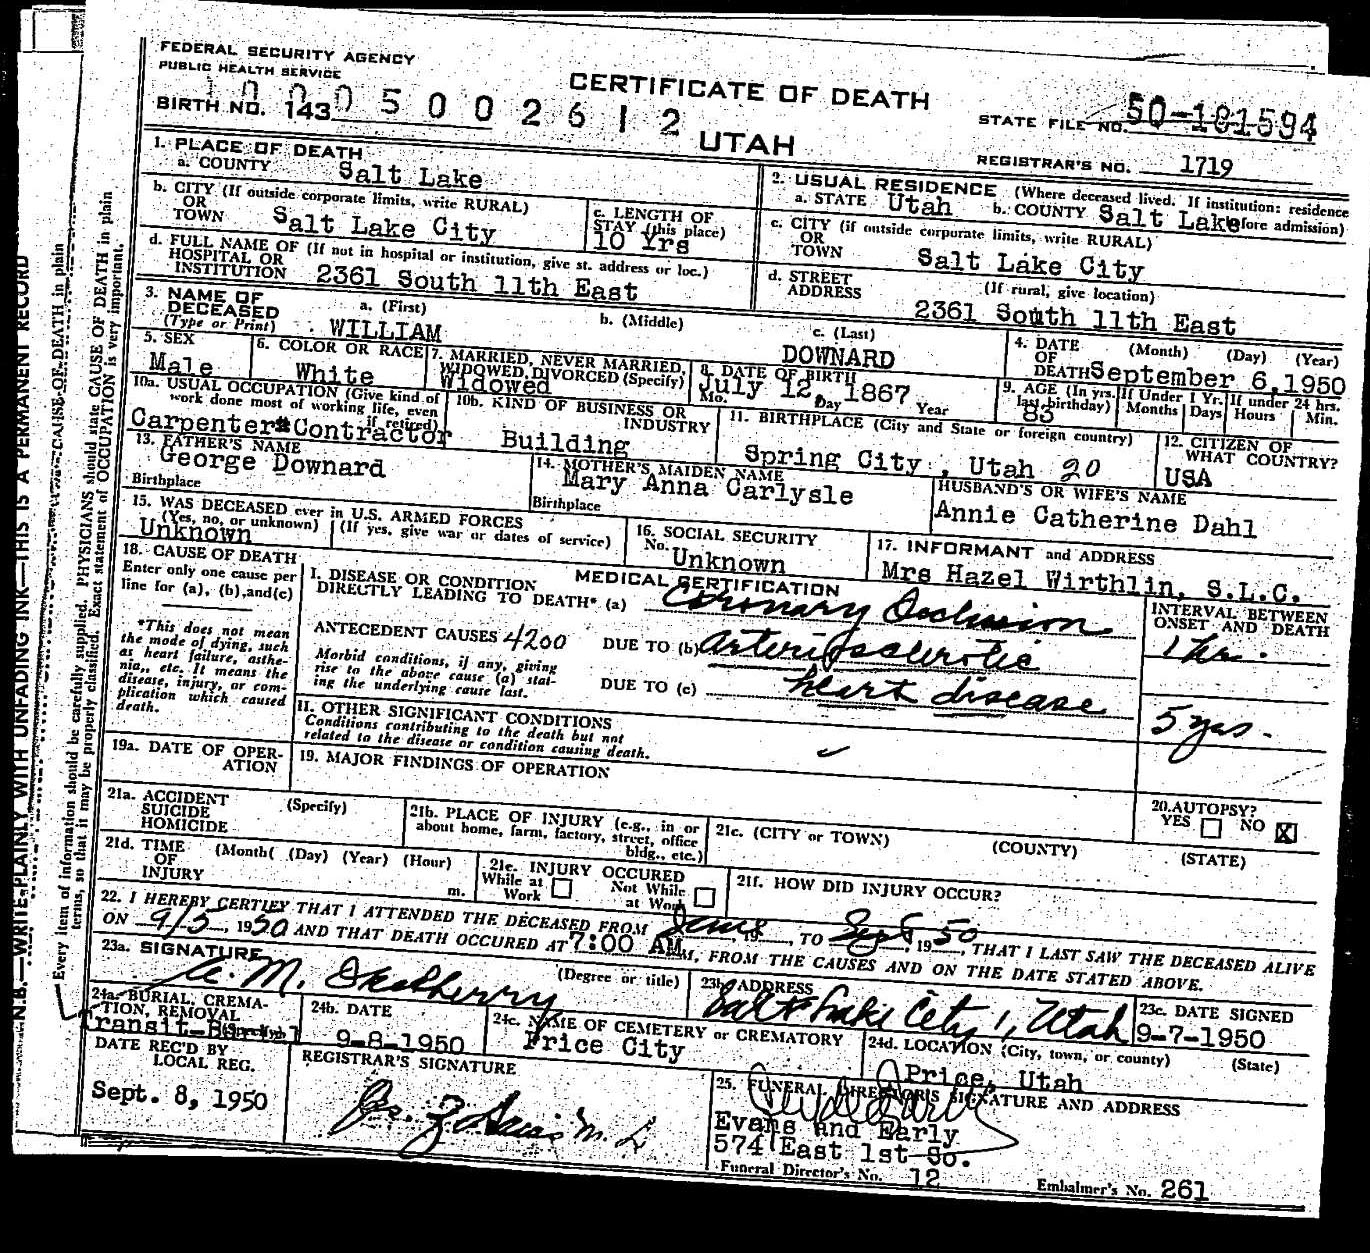 FEDERAL SECURITY AGENCY
PUBLIC HEALTH SERVICE
CERTIFICATE OF DEATH
UTAH
BIRTH NO. 143 0 5 0 0 2 6 1 2
STATE FILE NO. 50-181594
REGISTRAR'S NO. 1719
1. PLACE OF DEATH
a. COUNTY Salt Lake
b. CITY (If outside corporate limits, write RURAL)
OR
TOWN Salt Lake City
c. LENGTH OF
STAY (this place)
10 Yrs
d. FULL NAME OF (If not in hospital or institution, give st. address or loc.)
HOSPITAL OR
INSTITUTION 2361 South 11th East
2. USUAL RESIDENCE (Where deceased lived. If institution: residence
a. STATE Utah b. COUNTY Salt Lake before admission)
c. CITY (if outside corporate limits, write RURAL)
OR
TOWN Salt Lake City
d. STREET (If rural, give location)
ADDRESS 2361 South 11th East
3. NAME OF
DECEASED
(Type or Print)
a. (First) b. (Middle) c. (Last)
WILLIAM DOWNARD
4. DATE (Month) (Day) (Year)
OF
DEATH September 6, 1950
5. SEX
Male
6. COLOR OR RACE
White
7. MARRIED, NEVER MARRIED,
WIDOWED, DIVORCED (Specify)
Widowed
8. DATE OF BIRTH
July 12, 1867
Mo. Day Year
9. AGE (In yrs. last birthday)
83
If Under 1 Yr. Months Days
If under 24 hrs. Hours Min.
10a. USUAL OCCUPATION (Give kind of
work done most of working life, even
if retired)
Carpenter Contractor
10b. KIND OF BUSINESS OR
INDUSTRY
Building
11. BIRTHPLACE (City and State or foreign country)
Spring City, Utah 20
12. CITIZEN OF
WHAT COUNTRY?
USA
13. FATHER'S NAME
George Downard
Birthplace
14. MOTHER'S MAIDEN NAME
Mary Anna Carlysle
Birthplace
HUSBAND'S OR WIFE'S NAME
Annie Catherine Dahl
15. WAS DECEASED ever in U.S. ARMED FORCES
(Yes, no, or unknown) (If yes, give war or dates of service)
Unknown
16. SOCIAL SECURITY
No. Unknown
17. INFORMANT and ADDRESS
Mrs Hazel Wirthlin, S.L.C.
18. CAUSE OF DEATH
Enter only one cause per
line for (a), (b), and (c)
*This does not mean
the mode of dying, such
as heart failure, asthe-
nia, etc. It means the
disease, injury, or com-
plication which caused
death.
MEDICAL CERTIFICATION
I. DISEASE OR CONDITION
DIRECTLY LEADING TO DEATH* (a) Coronary Occlusion
ANTECEDENT CAUSES 4200 DUE TO (b) Arteriosclerotic
Morbid conditions, if any, giving
rise to the above cause (a) stat-
ing the underlying cause last.
DUE TO (c) heart disease
INTERVAL BETWEEN
ONSET AND DEATH
1 hr.
5 yrs.
II. OTHER SIGNIFICANT CONDITIONS
Conditions contributing to the death but not
related to the disease or condition causing death.
19a. DATE OF OPER-
ATION
19. MAJOR FINDINGS OF OPERATION
20. AUTOPSY?
YES NO X
21a. ACCIDENT (Specify)
SUICIDE
HOMICIDE
21b. PLACE OF INJURY (e.g., in or
about home, farm, factory, street, office
bldg., etc.)
21c. (CITY or TOWN) (COUNTY) (STATE)
21d. TIME (Month( (Day) (Year) (Hour)
OF
INJURY m.
21e. INJURY OCCURED
While at Work Not While at Work
21f. HOW DID INJURY OCCUR?
22. I HEREBY CERTIFY THAT I ATTENDED THE DECEASED FROM , 19 , TO Sept 6, 1950, THAT I LAST SAW THE DECEASED ALIVE
ON 9/5, 1950 AND THAT DEATH OCCURED AT 7:00 AM m, FROM THE CAUSES AND ON THE DATE STATED ABOVE.
23a. SIGNATURE (Degree or title)
23b. ADDRESS
Salt Lake City 1, Utah
23c. DATE SIGNED
9-7-1950
24a. BURIAL, CREMA-
TION, REMOVAL (Specify)
24b. DATE
9-8-1950
24c. NAME OF CEMETERY or CREMATORY
Price City
24d. LOCATION (City, town, or county) (State)
Price, Utah
DATE REC'D BY
LOCAL REG.
Sept. 8, 1950
REGISTRAR'S SIGNATURE
25. FUNERAL DIRECTOR'S SIGNATURE AND ADDRESS
Evans and Early
574 East 1st So.
Funeral Director's No. 12
Embalmer's No. 261
N.B.—WRITE PLAINLY WITH UNFADING INK—THIS IS A PERMANENT RECORD
Every item of information should be carefully supplied. PHYSICIANS should state CAUSE OF DEATH in plain
terms, so that it may be properly classified. Exact statement of OCCUPATION is very important.
CAUSE OF DEATH in plain